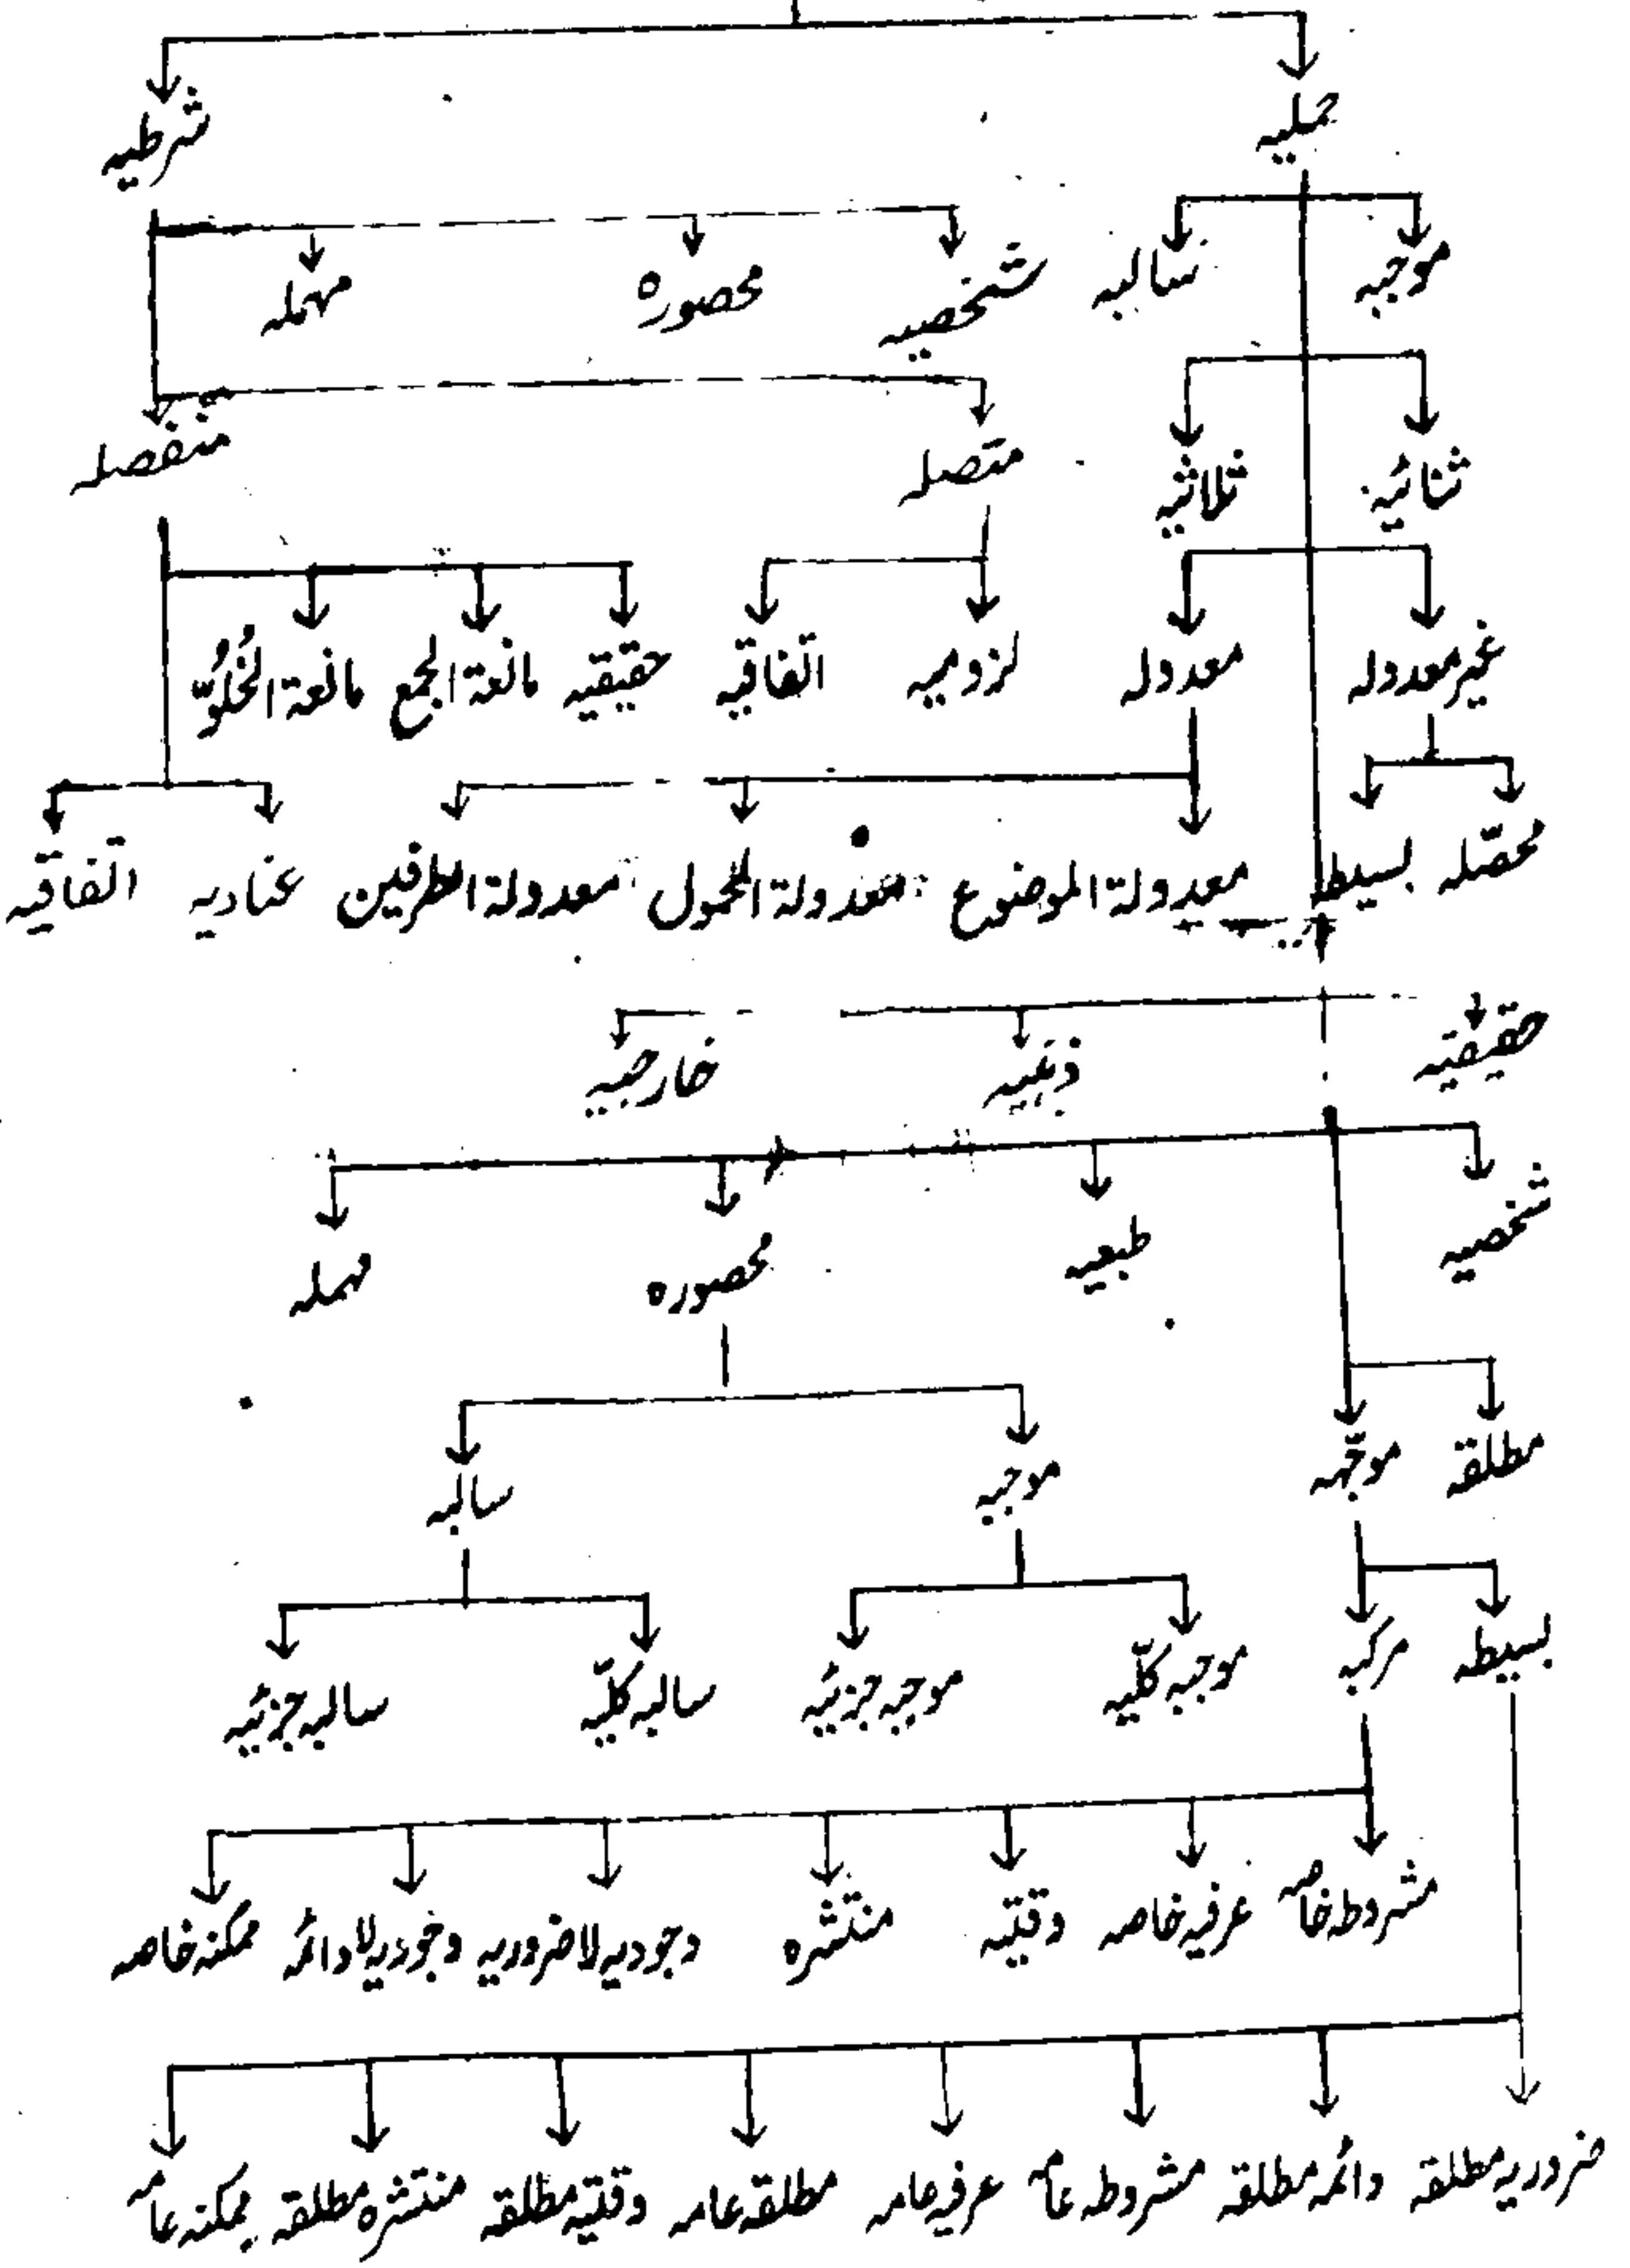 حملیہ شرطیہ
موجبہ سالبہ شخصیہ محصورہ مہملہ
ثنائیہ ثلاثیہ متصلہ منفصلہ
غیر معدولہ معدولہ لزومیہ اتفاقیہ حقیقیہ مانعۃ الجمع مانعۃ الخُلُوّ
محصّلہ بسیطہ معدولۃ الموضوع معدولۃ المحمول معدولۃ الطرفین عنادیہ اتفاقیہ
حقیقیہ ذہنیہ خارجیہ
شخصیہ طبعیہ محصورہ مہملہ
مطلقہ موجّہہ موجبہ سالبہ
بسیطہ مرکبہ موجبہ کلّیہ موجبہ جزئیہ سالبہ کلّیہ سالبہ جزئیہ
مشروطہ خاصہ عرفیہ خاصہ وقتیہ منتشرہ وجودیہ لا ضروریہ وجودیہ لا دائمہ ممکنہ خاصہ
ضروریہ مطلقہ دائمہ مطلقہ مشروطہ عامہ عرفیہ عامہ مطلقہ عامہ وقتیہ مطلقہ منتشرہ مطلقہ ممکنہ عامہ